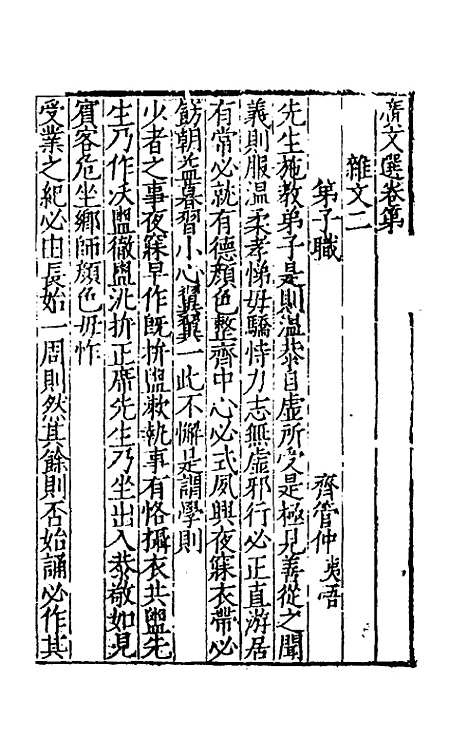 廣文選卷第
雜文二
弟子職
齊管仲夷吾
先生施教弟子是則溫恭自虛所受是極見善從之聞
義則服溫柔孝悌毋驕恃力志無虛邪行必正直游居
有常必就有德顏色整齊中心必式夙興夜寐衣帶必
飭朝益暮習小心翼翼一此不懈是謂學則
少者之事夜寐早作既拚盥漱執事有恪攝衣共盥先
生乃作沃盥徹盥汎拚正席先生乃坐出入恭敬如見
賓客危坐鄉師顏色毋怍
受業之紀必由長始一周則然其餘則否始誦必作其